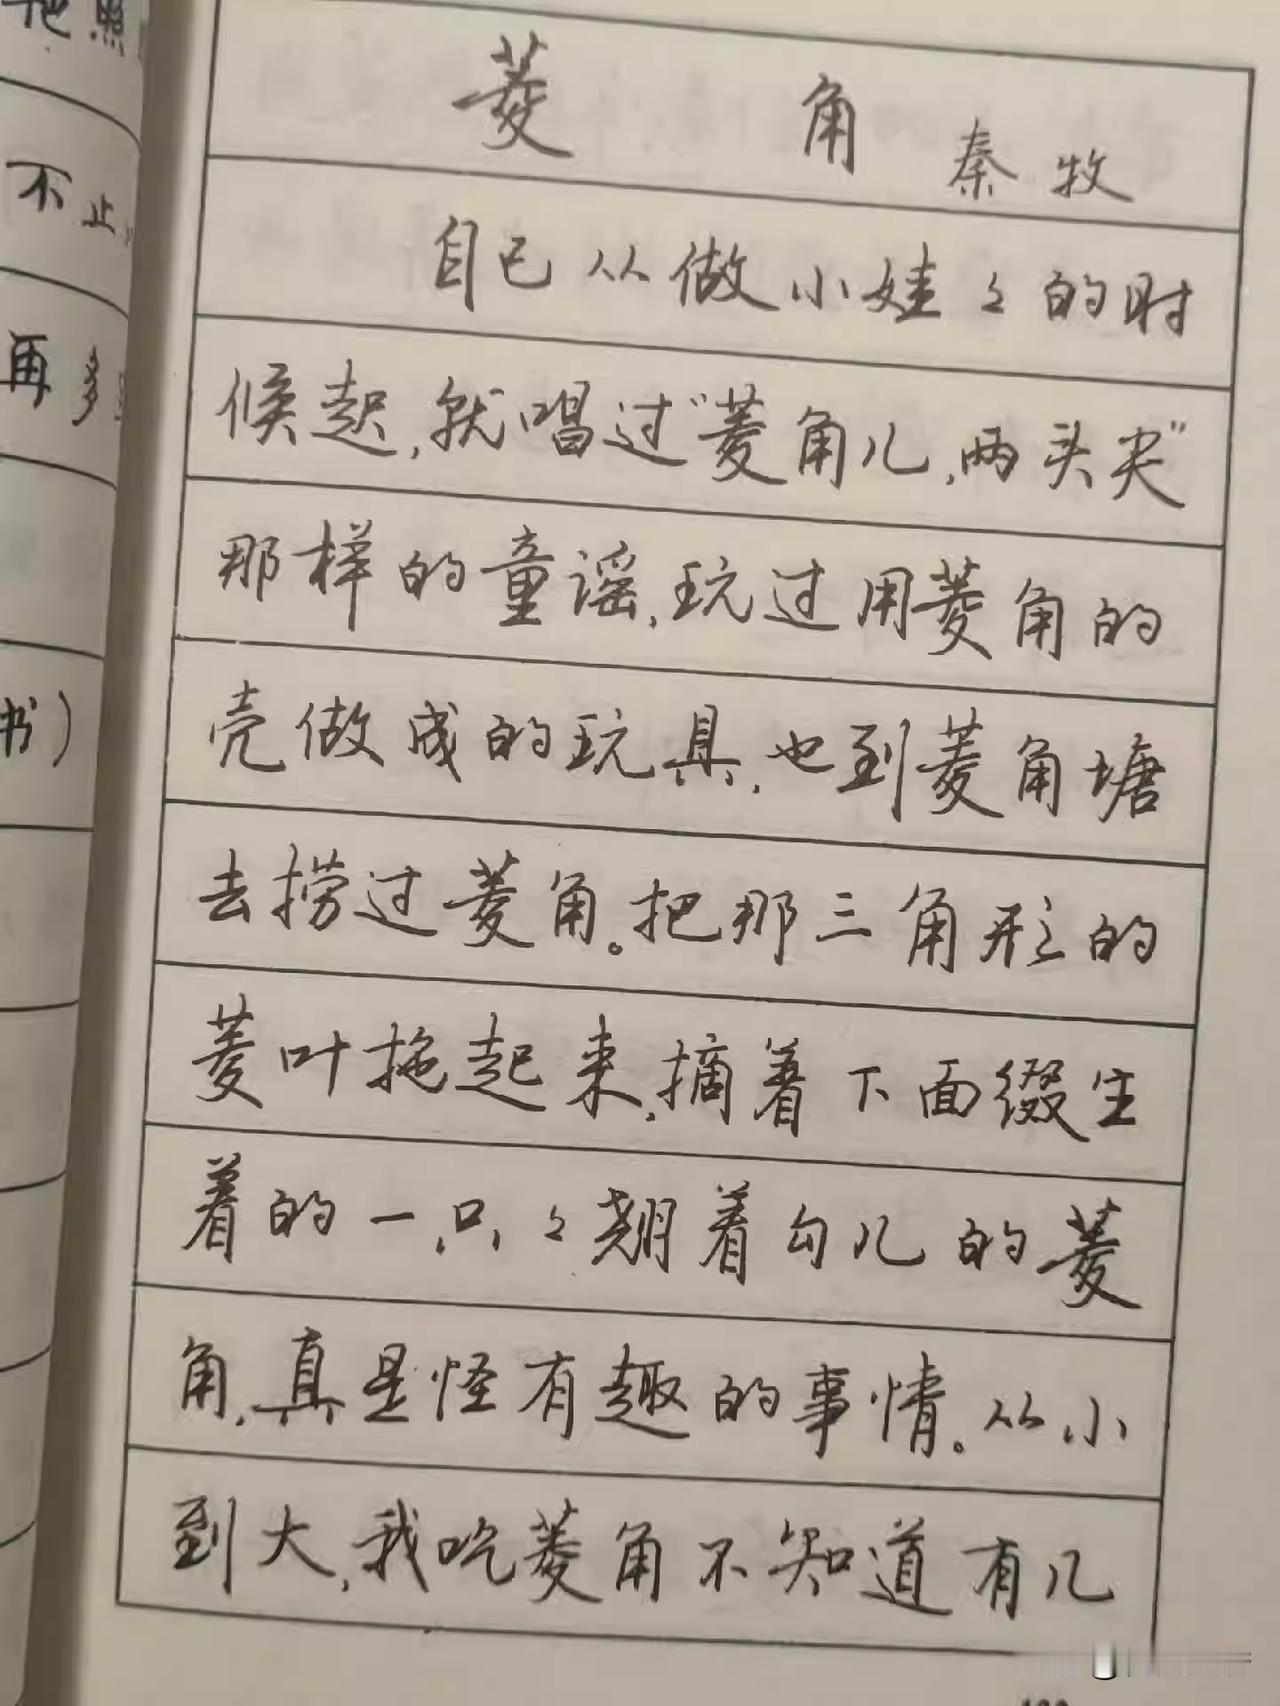 把照
不止
再多
书)
菱角 秦牧
自己从做小娃々的时
候起,就唱过“菱角儿,两头尖”
那样的童谣,玩过用菱角的
壳做成的玩具,也到菱角塘
去捞过菱角。把那三角形的
菱叶拖起来,摘着下面缀生
着的一只々翘着勾儿的菱
角,真是怪有趣的事情。从小
到大,我吃菱角不知道有几